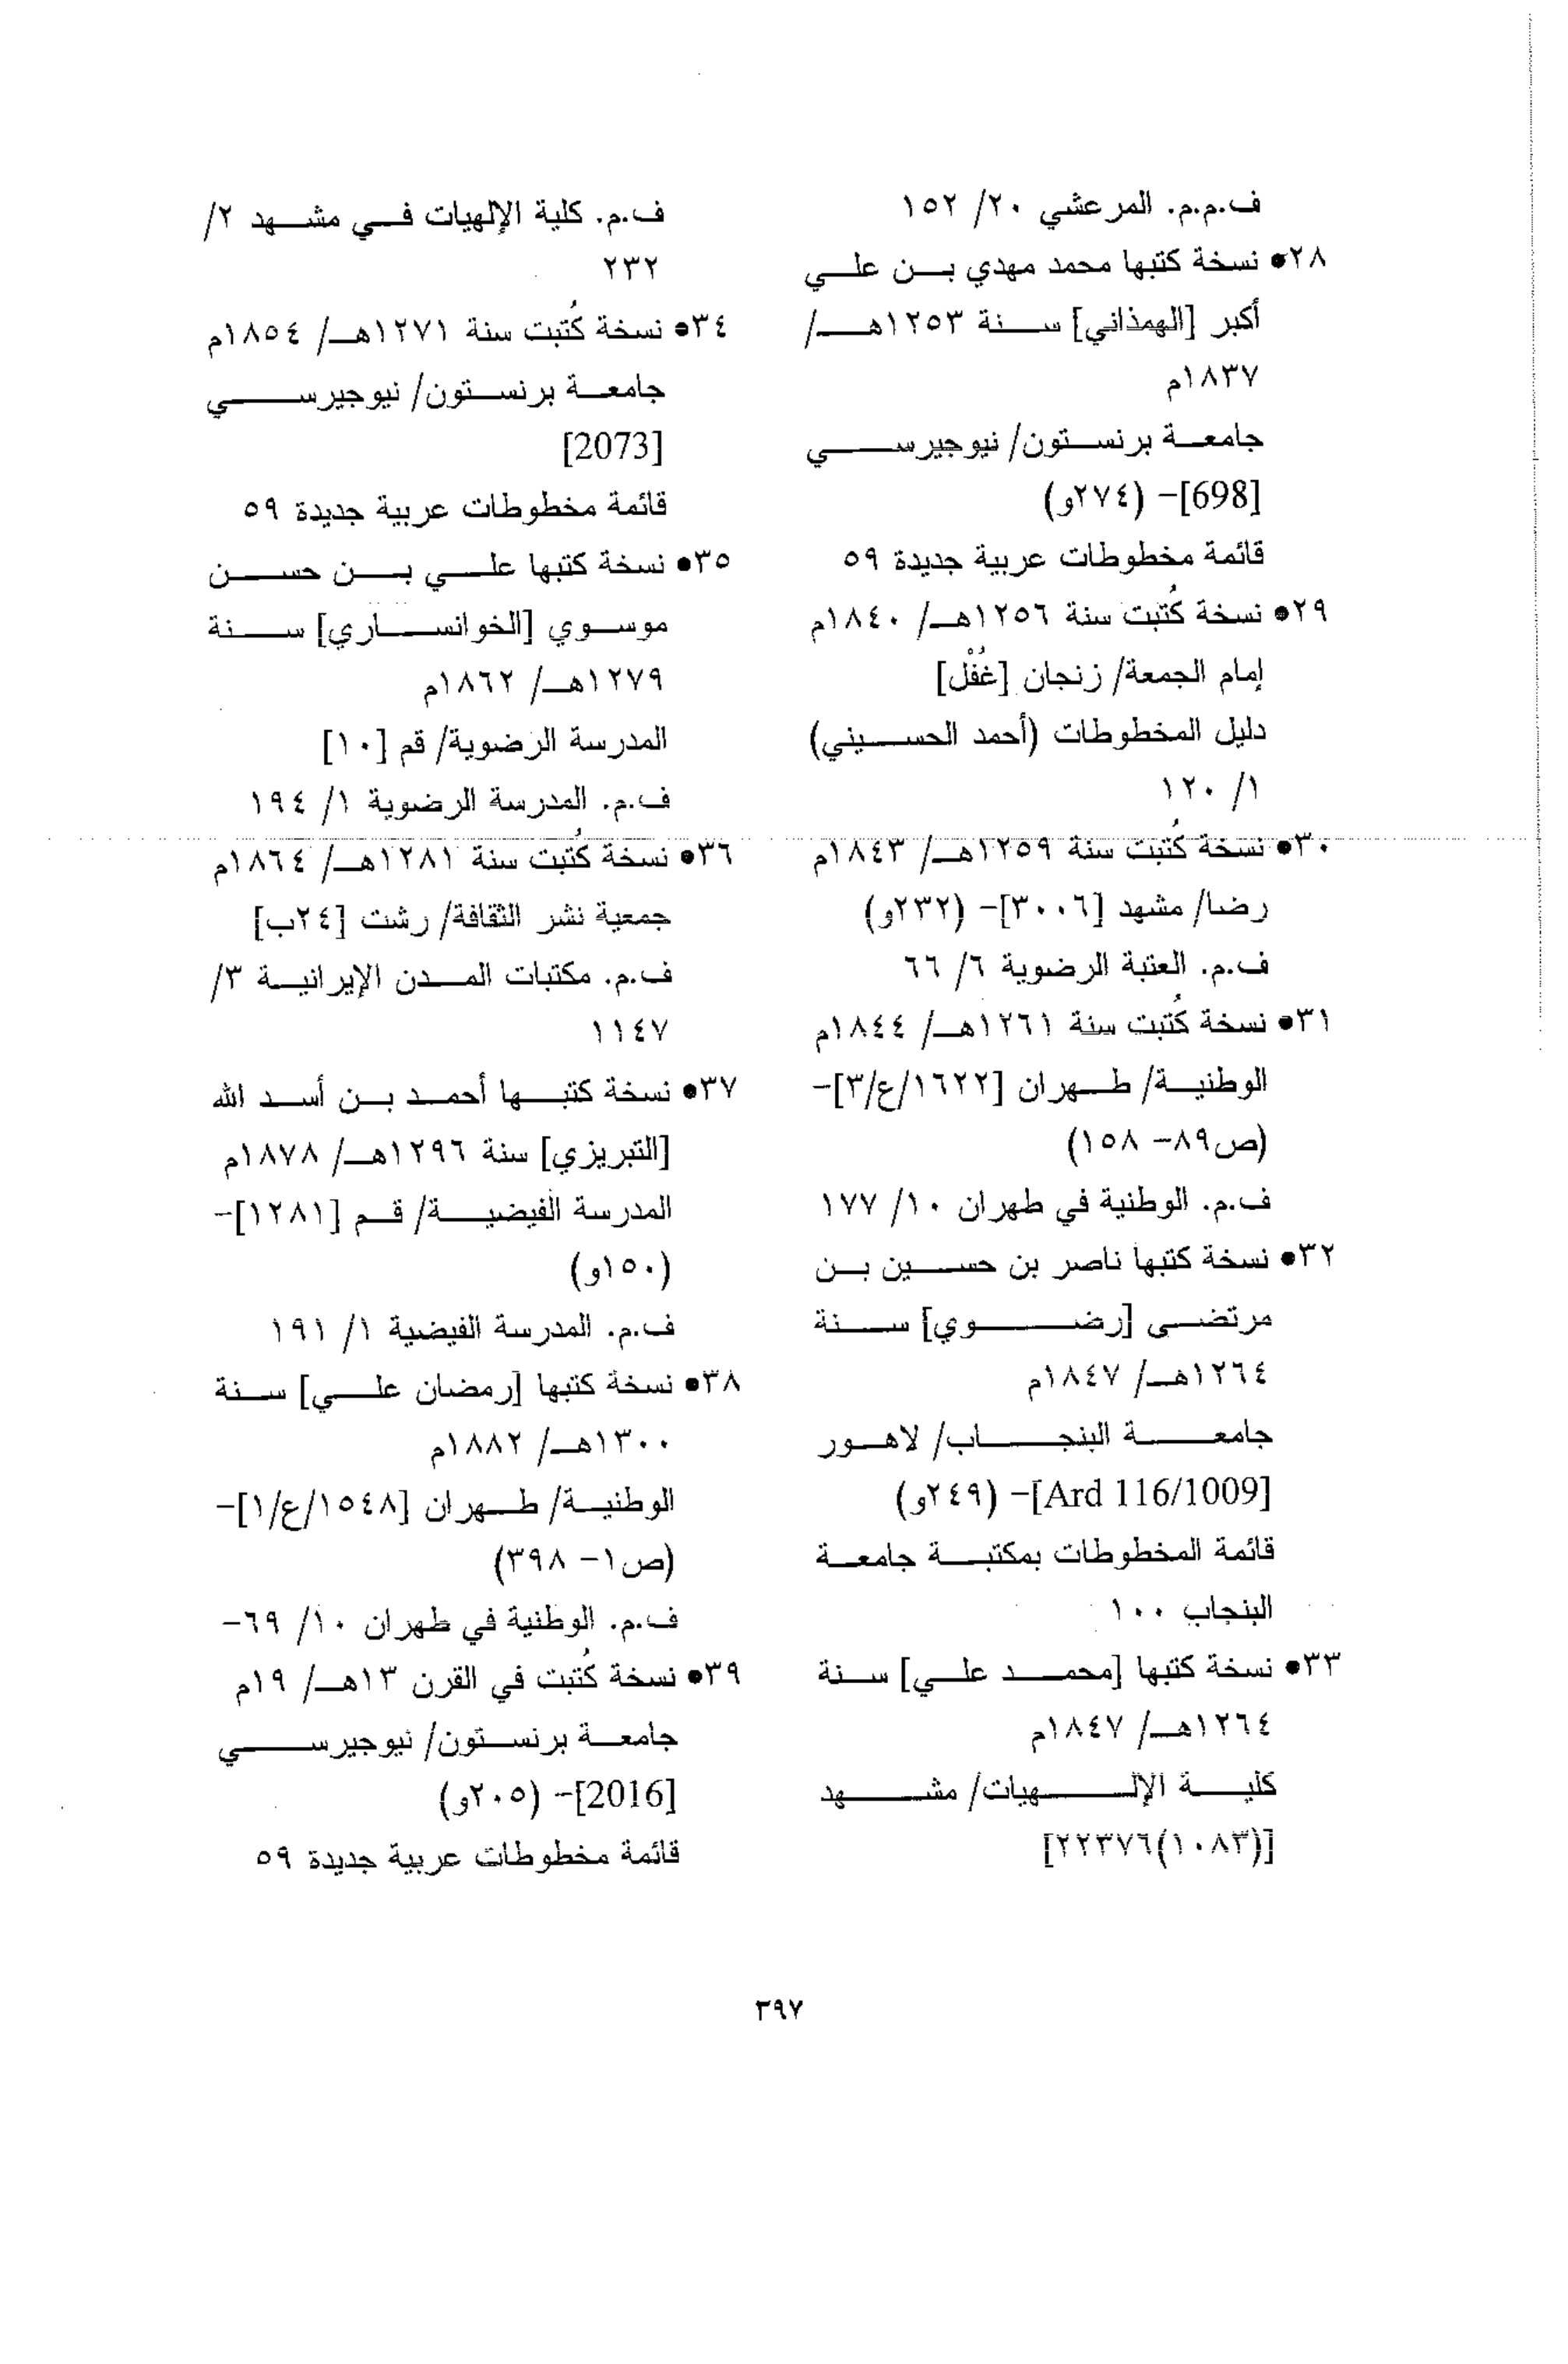 ف.م.م. المرعشي ٢٠/ ١٥٢
٢٨● نسخة كتبها محمد مهدي بن علي
أكبر [الهمذاني] سنة ١٢٥٣هـ/
١٨٣٧م
جامعة برنستون/ نيوجيرسي
[698]- (٢٧٤و)
قائمة مخطوطات عربية جديدة ٥٩
٢٩● نسخة كُتبت سنة ١٢٥٦هـ/ ١٨٤٠م
إمام الجمعة/ زنجان [غُفْل]
دليل المخطوطات (أحمد الحسيني)
١/ ١٢٠
٣٠● نسخة كُتبت سنة ١٢٥٩هـ/ ١٨٤٣م
رضا/ مشهد [٣٠٠٦]- (٢٣٢و)
ف.م. العتبة الرضوية ٦/ ٦٦
٣١● نسخة كُتبت سنة ١٢٦١هـ/ ١٨٤٤م
الوطنية/ طهران [١٦٢٢/ع/٣]-
(ص٨٩- ١٥٨)
ف.م. الوطنية في طهران ١٠/ ١٧٧
٣٢● نسخة كتبها ناصر بن حسين بن
مرتضى [رضوي] سنة
١٢٦٤هـ/ ١٨٤٧م
جامعة البنجاب/ لاهور
[Ard 116/1009]- (٢٤٩و)
قائمة المخطوطات بمكتبة جامعة
البنجاب ١٠٠
٣٣● نسخة كتبها [محمد علي] سنة
١٢٦٤هـ/ ١٨٤٧م
كلية الإلهيات/ مشهد
[(١٠٨٣)٢٢٣٧٦]
ف.م. كلية الإلهيات في مشهد ٢/
٢٣٢
٣٤● نسخة كُتبت سنة ١٢٧١هـ/ ١٨٥٤م
جامعة برنستون/ نيوجيرسي
[2073]
قائمة مخطوطات عربية جديدة ٥٩
٣٥● نسخة كتبها علي بن حسن
موسوي [الخوانساري] سنة
١٢٧٩هـ/ ١٨٦٢م
المدرسة الرضوية/ قم [١٠]
ف.م. المدرسة الرضوية ١/ ١٩٤
٣٦● نسخة كُتبت سنة ١٢٨١هـ/ ١٨٦٤م
جمعية نشر الثقافة/ رشت [٢٤ب]
ف.م. مكتبات المدن الإيرانية ٣/
١١٤٧
٣٧● نسخة كتبها أحمد بن أسد الله
[التبريزي] سنة ١٢٩٦هـ/ ١٨٧٨م
المدرسة الفيضية/ قم [١٢٨١]-
(١٥٠و)
ف.م. المدرسة الفيضية ١/ ١٩١
٣٨● نسخة كتبها [رمضان علي] سنة
١٣٠٠هـ/ ١٨٨٢م
الوطنية/ طهران [١٥٤٨/ع/١]-
(ص١- ٣٩٨)
ف.م. الوطنية في طهران ١٠/ ٦٩-
٣٩● نسخة كُتبت في القرن ١٣هـ/ ١٩م
جامعة برنستون/ نيوجيرسي
[2016]- (٢٠٥و)
قائمة مخطوطات عربية جديدة ٥٩
٣٩٧